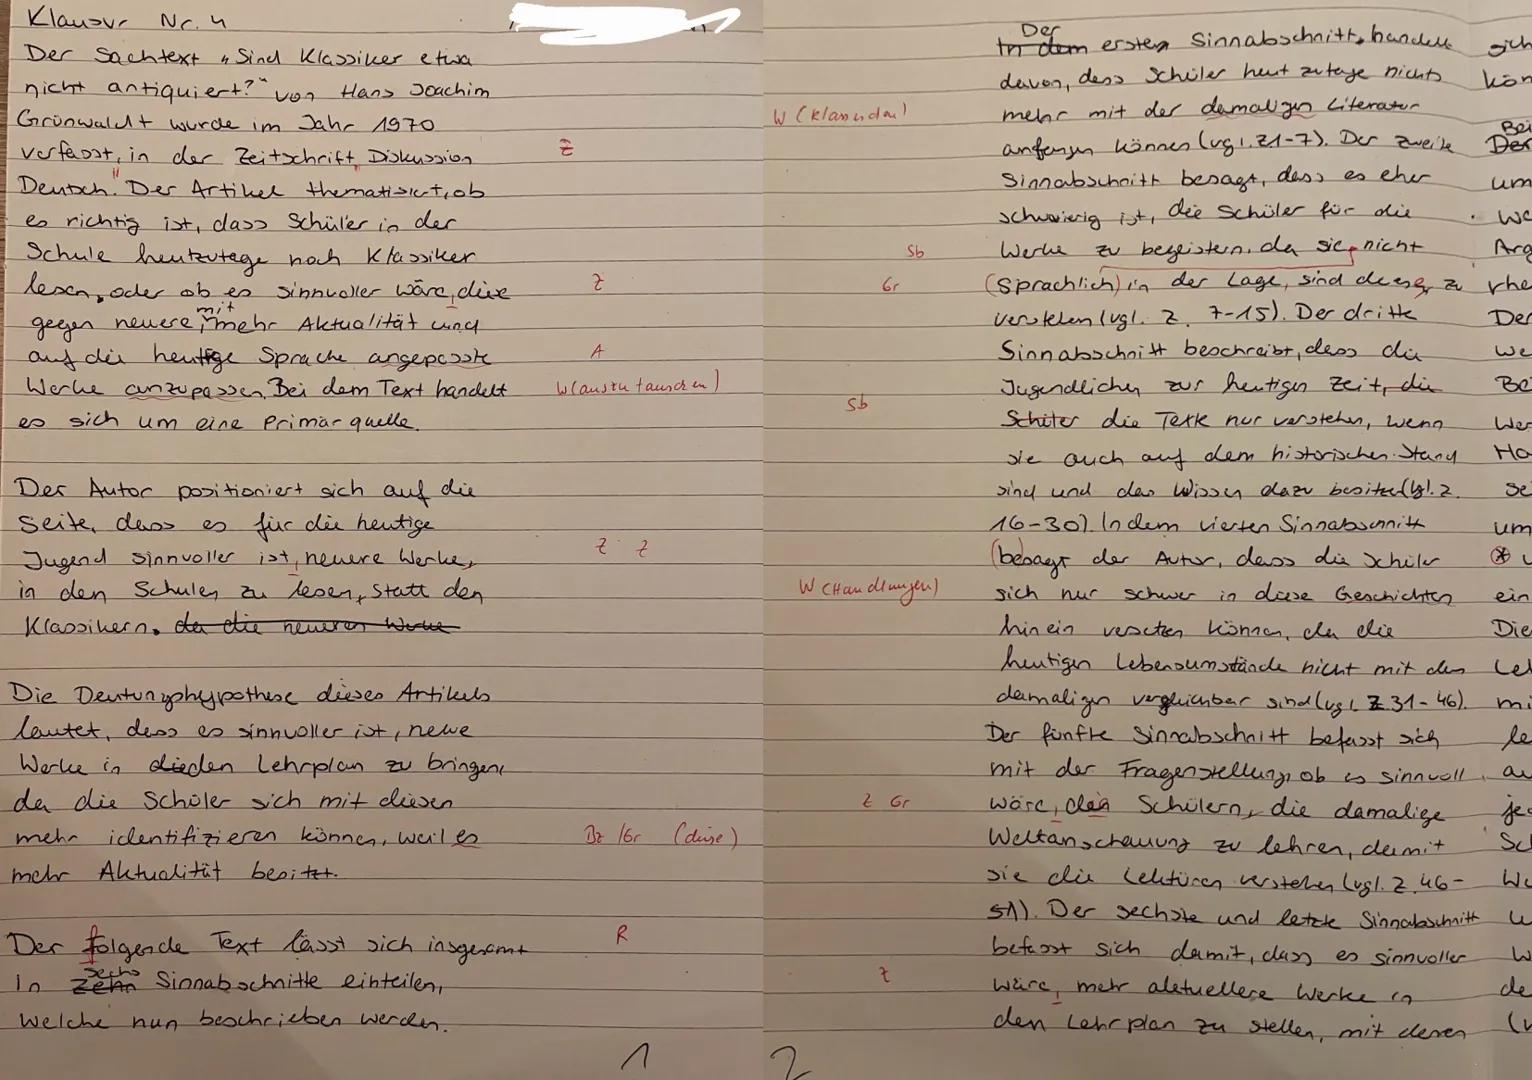 Klausur Nr. 4
Der Sachtext „Sind Klassiker etwa
nicht antiquiert?" von Hans Joachim
Grünwaldt wurde im Jahr 1970
verfasst, in der Zeitschrift Diskussion Z
Deutsch". Der Artikel thematisiert, ob
es richtig ist, dass Schüler in der
Schule heutzutage noch Klassiker
lesen, oder ob es sinnvoller wäre, diese Z
mit
gegen neuere, mehr Aktualität und
auf die heutige Sprache angepasste A
Werke anzupassen. Bei dem Text handelt W (auszutauschen)
es sich um eine Primärquelle.
Der Autor positioniert sich auf die
Seite, dass es für die heutige
Jugend sinnvoller ist, neuere Werke, Z Z
in den Schulen zu lesen, statt den
Klassikern. da die neueren Werke
Die Deutungshypothese dieses Artikels
lautet, dass es sinnvoller ist, neue
Werke in den Lehrplan zu bringen,
da die Schüler sich mit diesen
mehr identifizieren können, weil es Bz /Gr (diese)
mehr Aktualität besitzt.
Der folgende Text lässt sich insgesamt R
sechs
In zehn Sinnabschnitte einteilen,
welche nun beschrieben werden.
1
Der
In dem ersten Sinnabschnitt, handelt
davon, dass Schüler heut zutage nichts
W (Klassischen) mehr mit der damaligen Literatur
anfangen können (vgl. Z1-7). Der zweite
Sinnabschnitt besagt, dass es eher
schwierig ist, die Schüler für die
Sb Werke zu begeistern, da sie, nicht
Gr (sprachlich) in der Lage, sind diese zu
verstehen (vgl. Z. 7-15). Der dritte
Sinnabschnitt beschreibt, dass die
Jugendlichen zur heutigen Zeit, die
Sb Schüler die Texte nur verstehen, wenn
sie auch auf dem historischen Stand
sind und das Wissen dazu besitzen (vgl. Z.
16-30). In dem vierten Sinnabschnitt
(besagt der Autor, dass die Schüler
W (Handlungen) sich nur schwer in diese Geschichten
hinein versetzen können, da die
heutigen Lebensumstände nicht mit den
damaligen vergleichbar sind (vgl. Z 31-46).
Der fünfte Sinnabschnitt befasst sich
mit der Fragenstellung, ob es sinnvoll
Z Gr wäre, den Schülern, die damalige
Weltanschauung zu lehren, damit
sie die Lektüren verstehen (vgl. Z. 46-
51). Der sechste und letzte Sinnabschnitt
befasst sich damit, dass es sinnvoller
Z wäre, mehr aktuellere Werke in
den Lehrplan zu stellen, mit denen
2